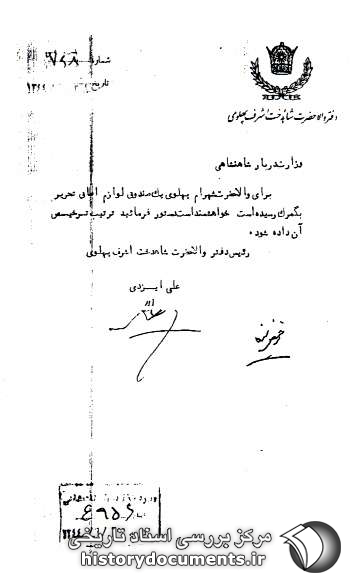 شماره ۹۷۸
تاریخ
دفتر والاحضرت شاهدخت اشرف پهلوی
وزارت دربار شاهنشاهی
برای والاحضرت شهرام پهلوی یک صندوق لوازم اطاق تحریر
بگمرک رسیده است خواهشمند است دستور فرمائید ترتیب ترخیص
آن داده شود.
رئیس دفتر والاحضرت شاهدخت اشرف پهلوی
علی ایزدی
مرکز بررسی اسناد تاریخی
historydocuments.ir